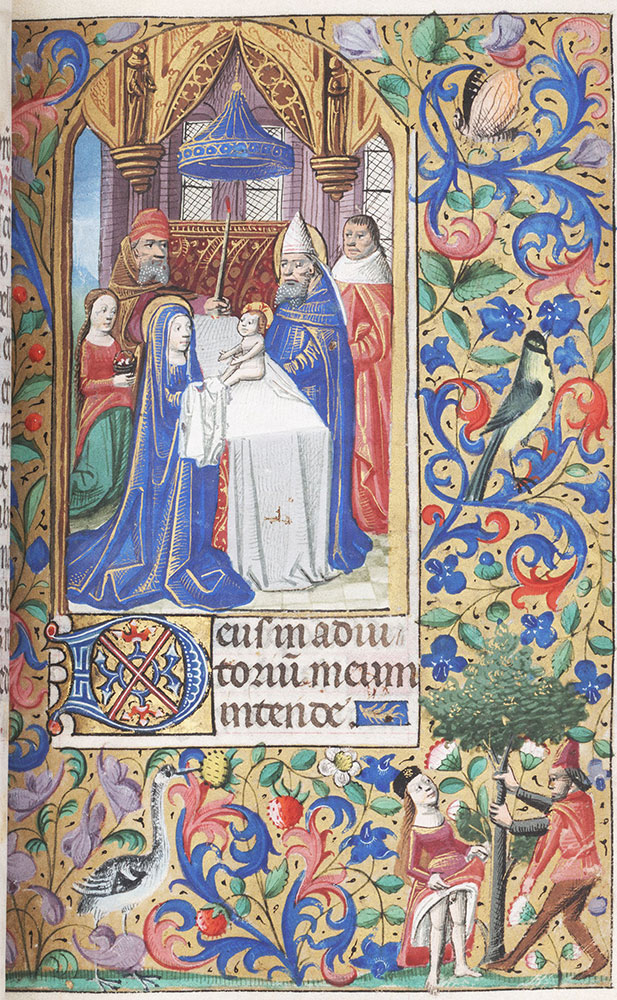 Deus in adiu
toriū meum
intende